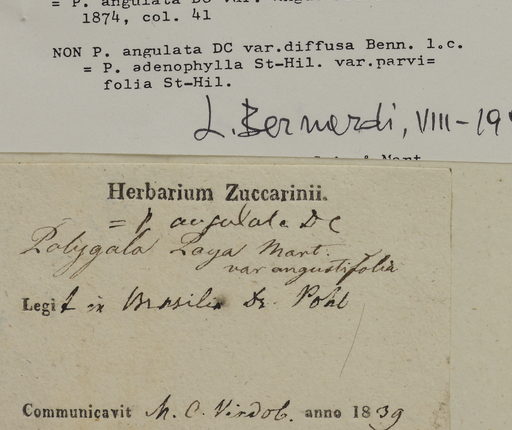 = P. angulata DC var.
1874, col. 41
NON P. angulata DC var.diffusa Benn. l.c.
= P. adenophylla St-Hil. var.parvi=
folia St-Hil.
L. Bernardi, VIII-19
& Mart
Herbarium Zuccarinii.
= P angulata DC
Polygala Paya Mart.
var angustifolia
Legit in Brasilia Dr. Pohl
Communicavit M. C. Vindob. anno 1839